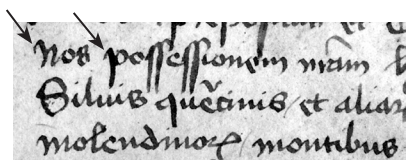 Nos possessionem nrām
Siluis quērcinis et aliar
molendinor montibus